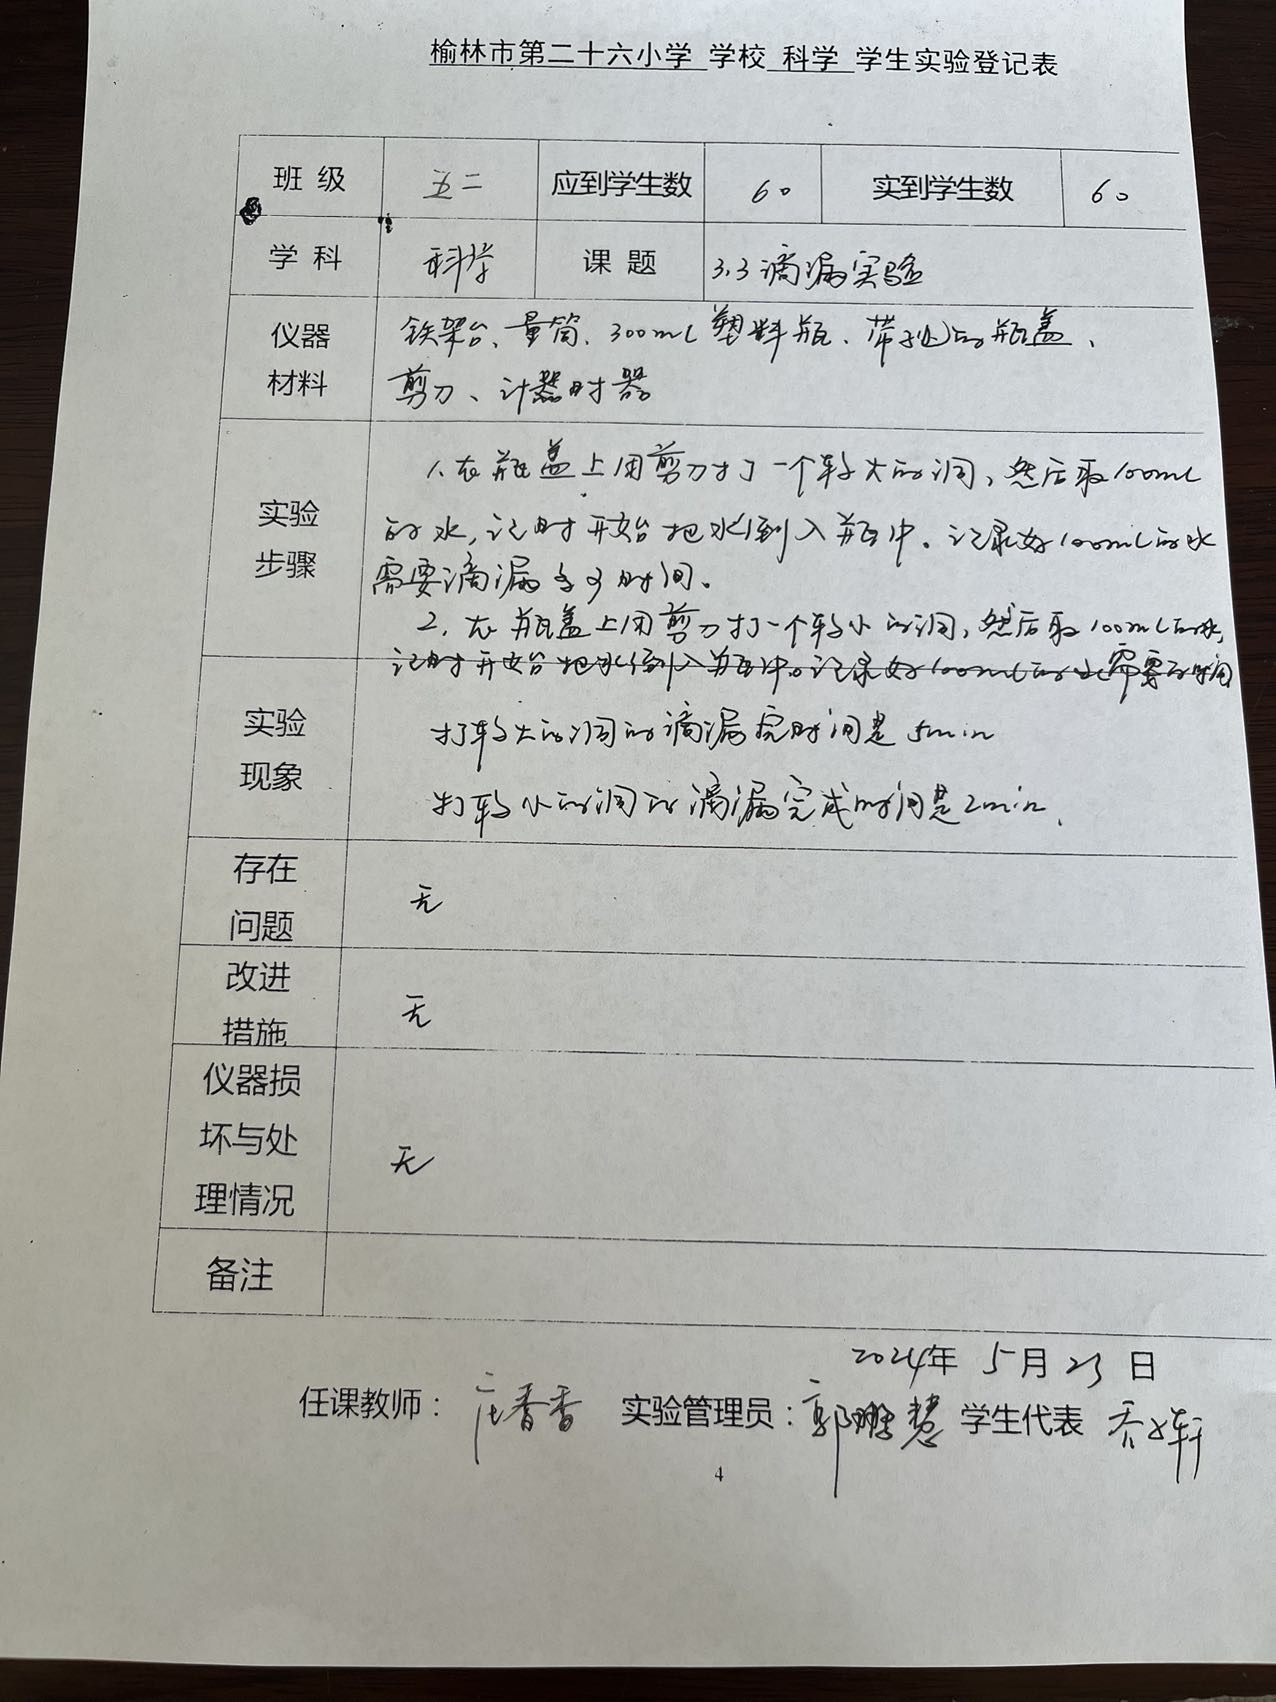 榆林市第二十六小学 学校 科学 学生实验登记表
班 级 五二 应到学生数 60 实到学生数 60
学 科 科学 课 题 3.3 滴漏实验
仪器 铁架台、量筒、300mL 塑料瓶、带孔的瓶盖、
材料 剪刀、计时器
实验 步骤
1、在瓶盖上用剪刀打一个较大的洞,然后取100mL
的水,记时开始把水倒入瓶中。记录好100mL的水
需要滴漏多少时间。
2、在瓶盖上用剪刀打一个较小的洞,然后取100mL的水,
记时开始把水倒入瓶中。记录好100mL的水需要的时间
实验 现象
打较大的洞的滴漏完时间是 5min
打较小的洞的滴漏完成时间是2min.
存在 问题 无
改进 措施 无
仪器损
坏与处 无
理情况
备注
2024年 5月 23 日
任课教师: 香香 实验管理员: 郭鹏慧 学生代表 轩
4